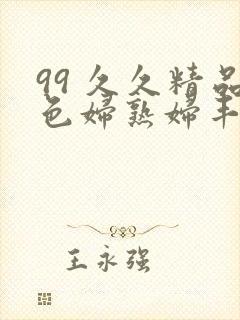 99久久精品
色婦熟婦丰
王永强